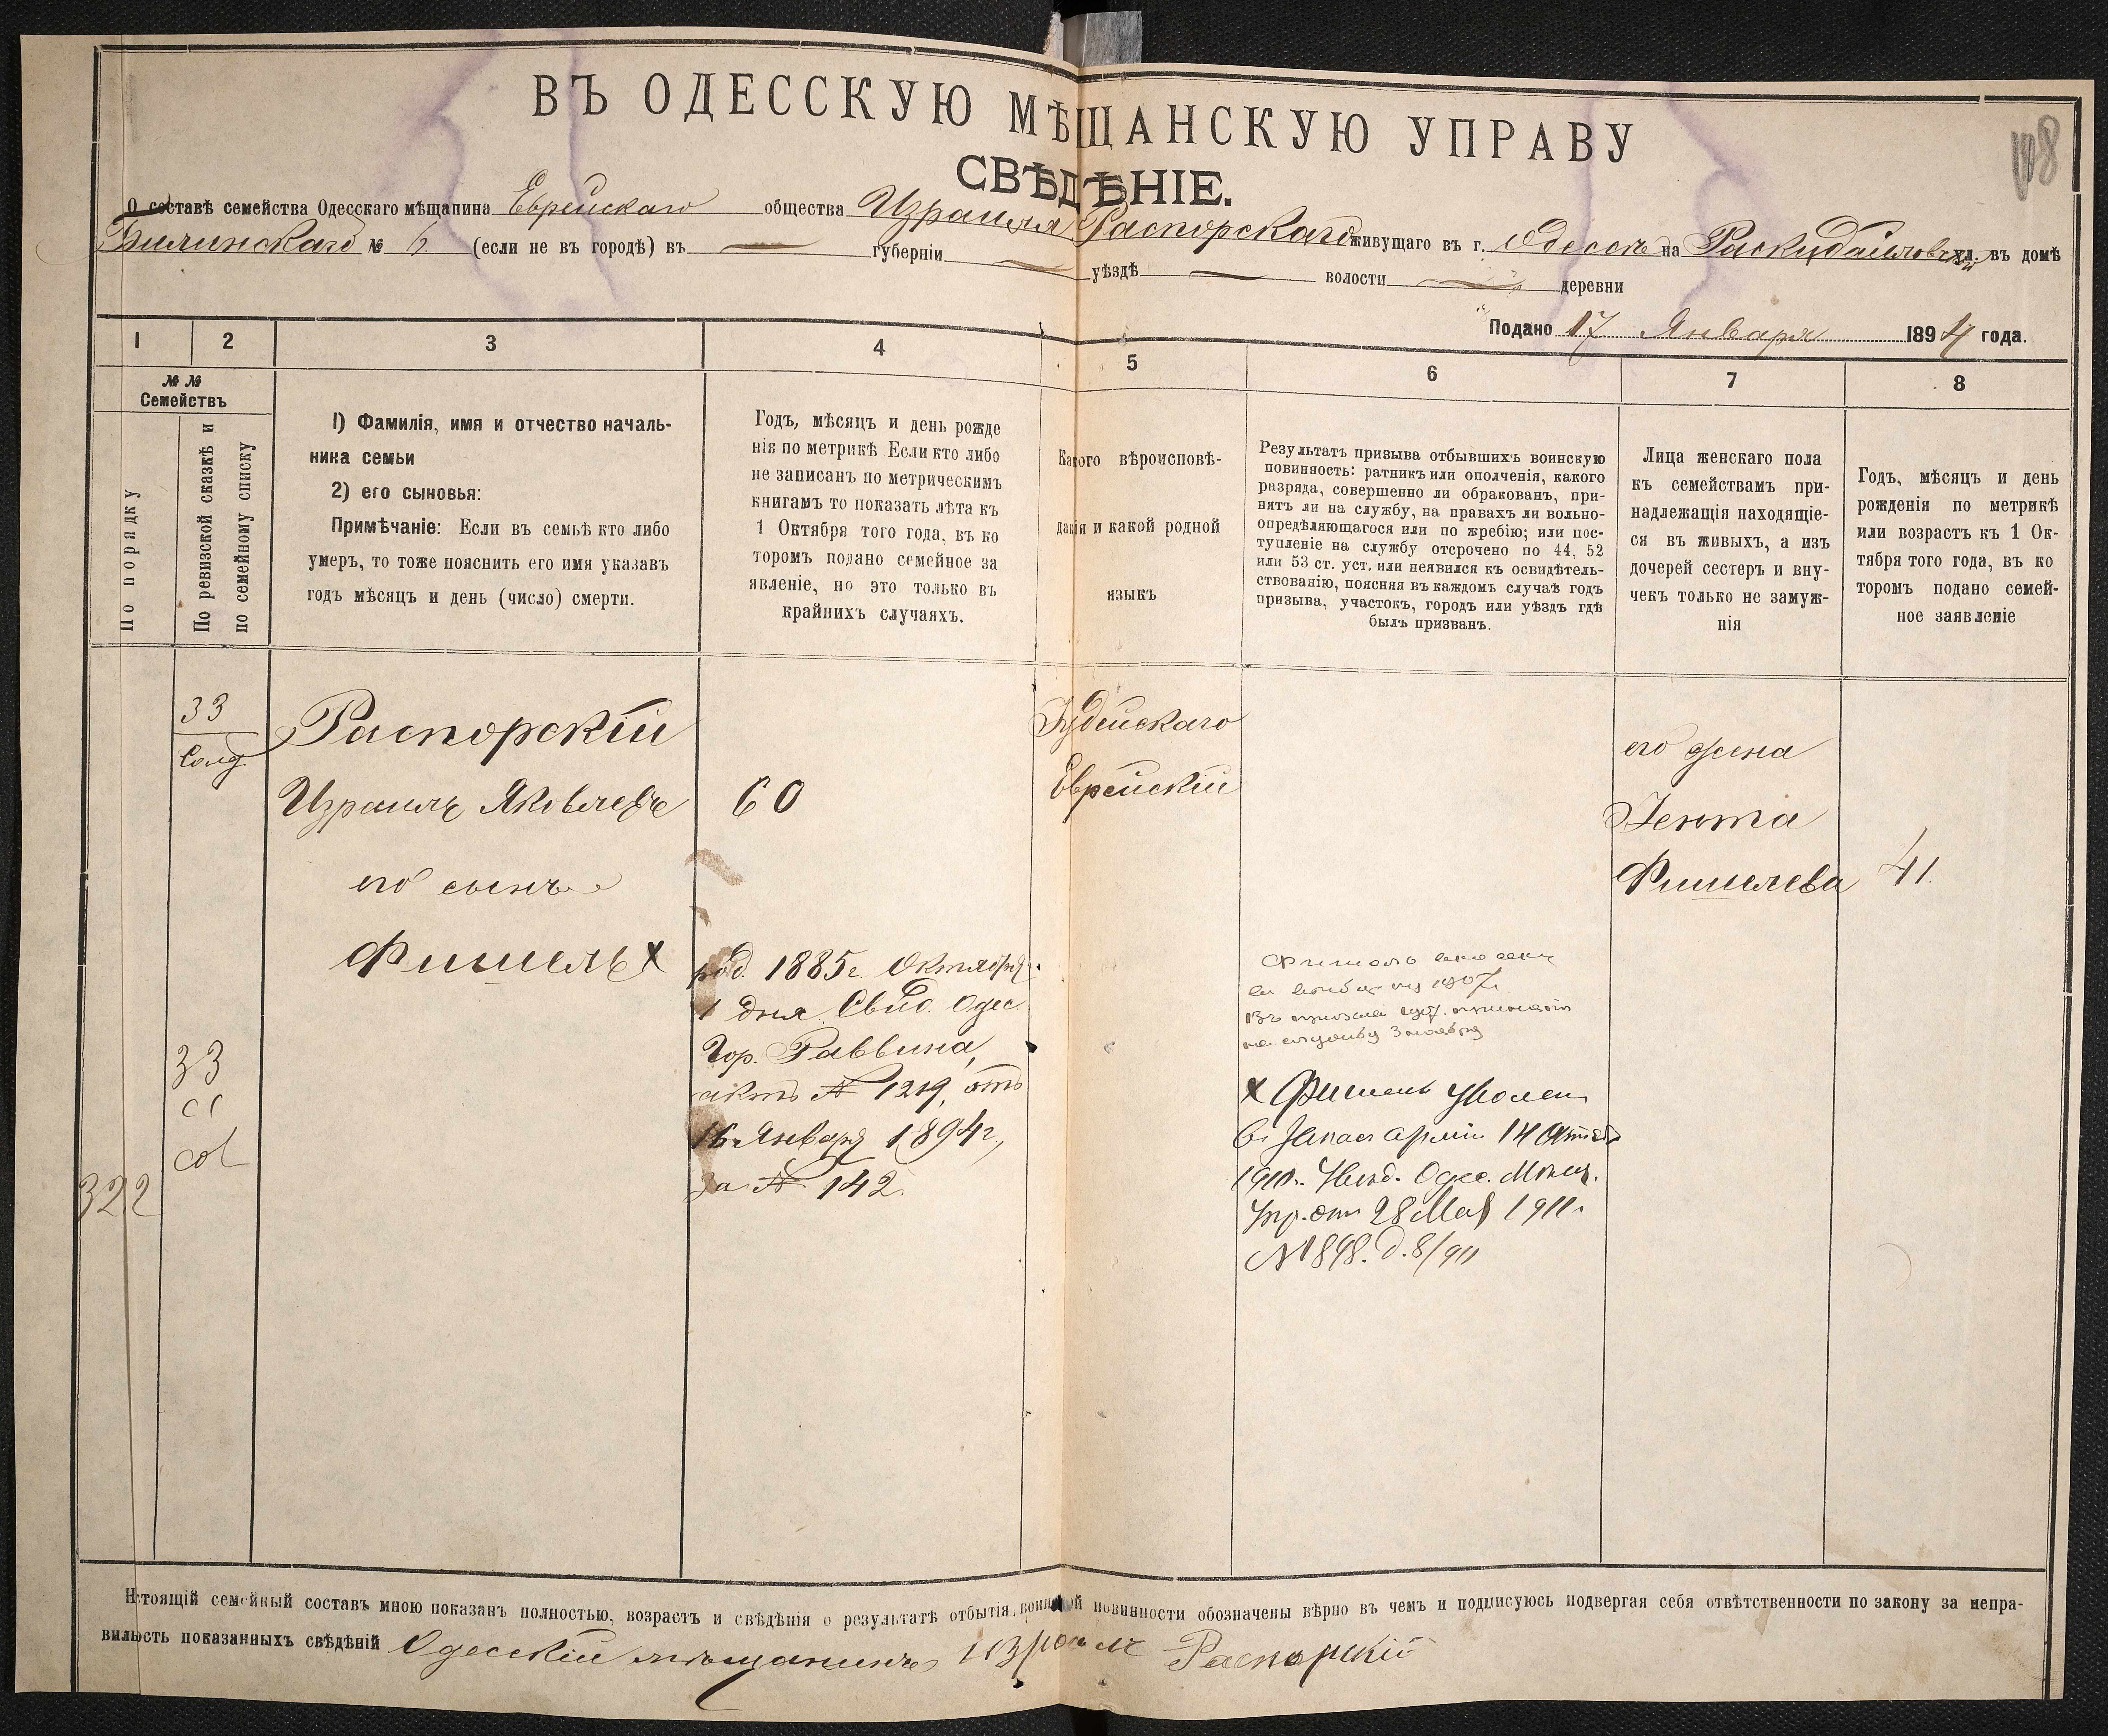 108
ВЪ ОДЕССКУЮ МѢЩАНСКУЮ УПРАВУ
СВѢДѢНІЕ.
О составѣ семейства Одесскаго мѣщанина Еврейскаго общества Израиля Распорскаго живущаго въ г. Одессѣ на Раскидайловской ул. въ домѣ
Билинскаго № 6 (если не въ городѣ) въ губерніи уѣздѣ волости деревни
Подано 17 Января 1894 года.
1 2 3 4 5 6 7 8
№ №
Семействъ
По порядку
По ревизской сказкѣ и
по семейному списку
1) Фамилія, имя и отчество началь-
ника семьи
2) его сыновья:
Примѣчаніе: Если въ семьѣ кто либо
умеръ, то тоже пояснить его имя указавъ
годъ мѣсяцъ и день (число) смерти.
Годъ, мѣсяцъ и день рожде
нія по метрикѣ Если кто либо
не записанъ по метрическимъ
книгамъ то показать лѣта къ
1 Октября того года, въ ко
торомъ подано семейное за
явленіе, но это только въ
крайнихъ случаяхъ.
Какого вѣроисповѣ-
данія и какой родной
языкъ
Результатъ призыва отбывшихъ воинскую
повинность: ратникъ или ополченія, какого
разряда, совершенно ли обракованъ, при-
нятъ ли на службу, на правахъ ли вольно-
опредѣляющагося или по жребію; или пос-
тупленіе на службу отсрочено по 44, 52
или 53 ст. уст. или неявился къ освидѣтель-
ствованію, поясняя въ каждомъ случаѣ годъ
призыва, участокъ, городъ или уѣздъ гдѣ
былъ призванъ.
Лица женскаго пола
къ семействамъ при-
надлежащія находящіе-
ся въ живыхъ, а изъ
дочерей сестеръ и вну-
чекъ только не замуж-
нія
Годъ, мѣсяцъ и день
рожденія по метрикѣ
или возрастъ къ 1 Ок-
тября того года, въ ко
торомъ подано семей-
ное заявленіе
33
Солд.
Распорскій
Израиль Яковлевъ
60
его сынъ
Фишель х
род. 1885 г. Октября
1 дня. Свид. Одес.
Гор. Раввина,
актъ № 1219, отъ
16 Января 1894 г,
за № 142.
33
322
Іудейскаго
Еврейскій
Фишель
1907
1907. принятъ
на службу 3 ноября
х Фишель уволен
въ запас арміи 14 Октяб
1910. Увѣд. Одес. Мѣщ.
Упр. отъ 28 Мая 1911 г
№ 1848. д. 8/911
его жена
Гента
Фишелева
41.
Нстоящій семейный составъ мною показанъ полностью, возрастъ и свѣдѣнія о результатѣ отбытія воинской повинности обозначены вѣрно въ чемъ и подписуюсь подвергая себя отвѣтственности по закону за непра-
вильность показанныхъ свѣдѣній Одесскій мѣщанинъ Израиль Распорскій